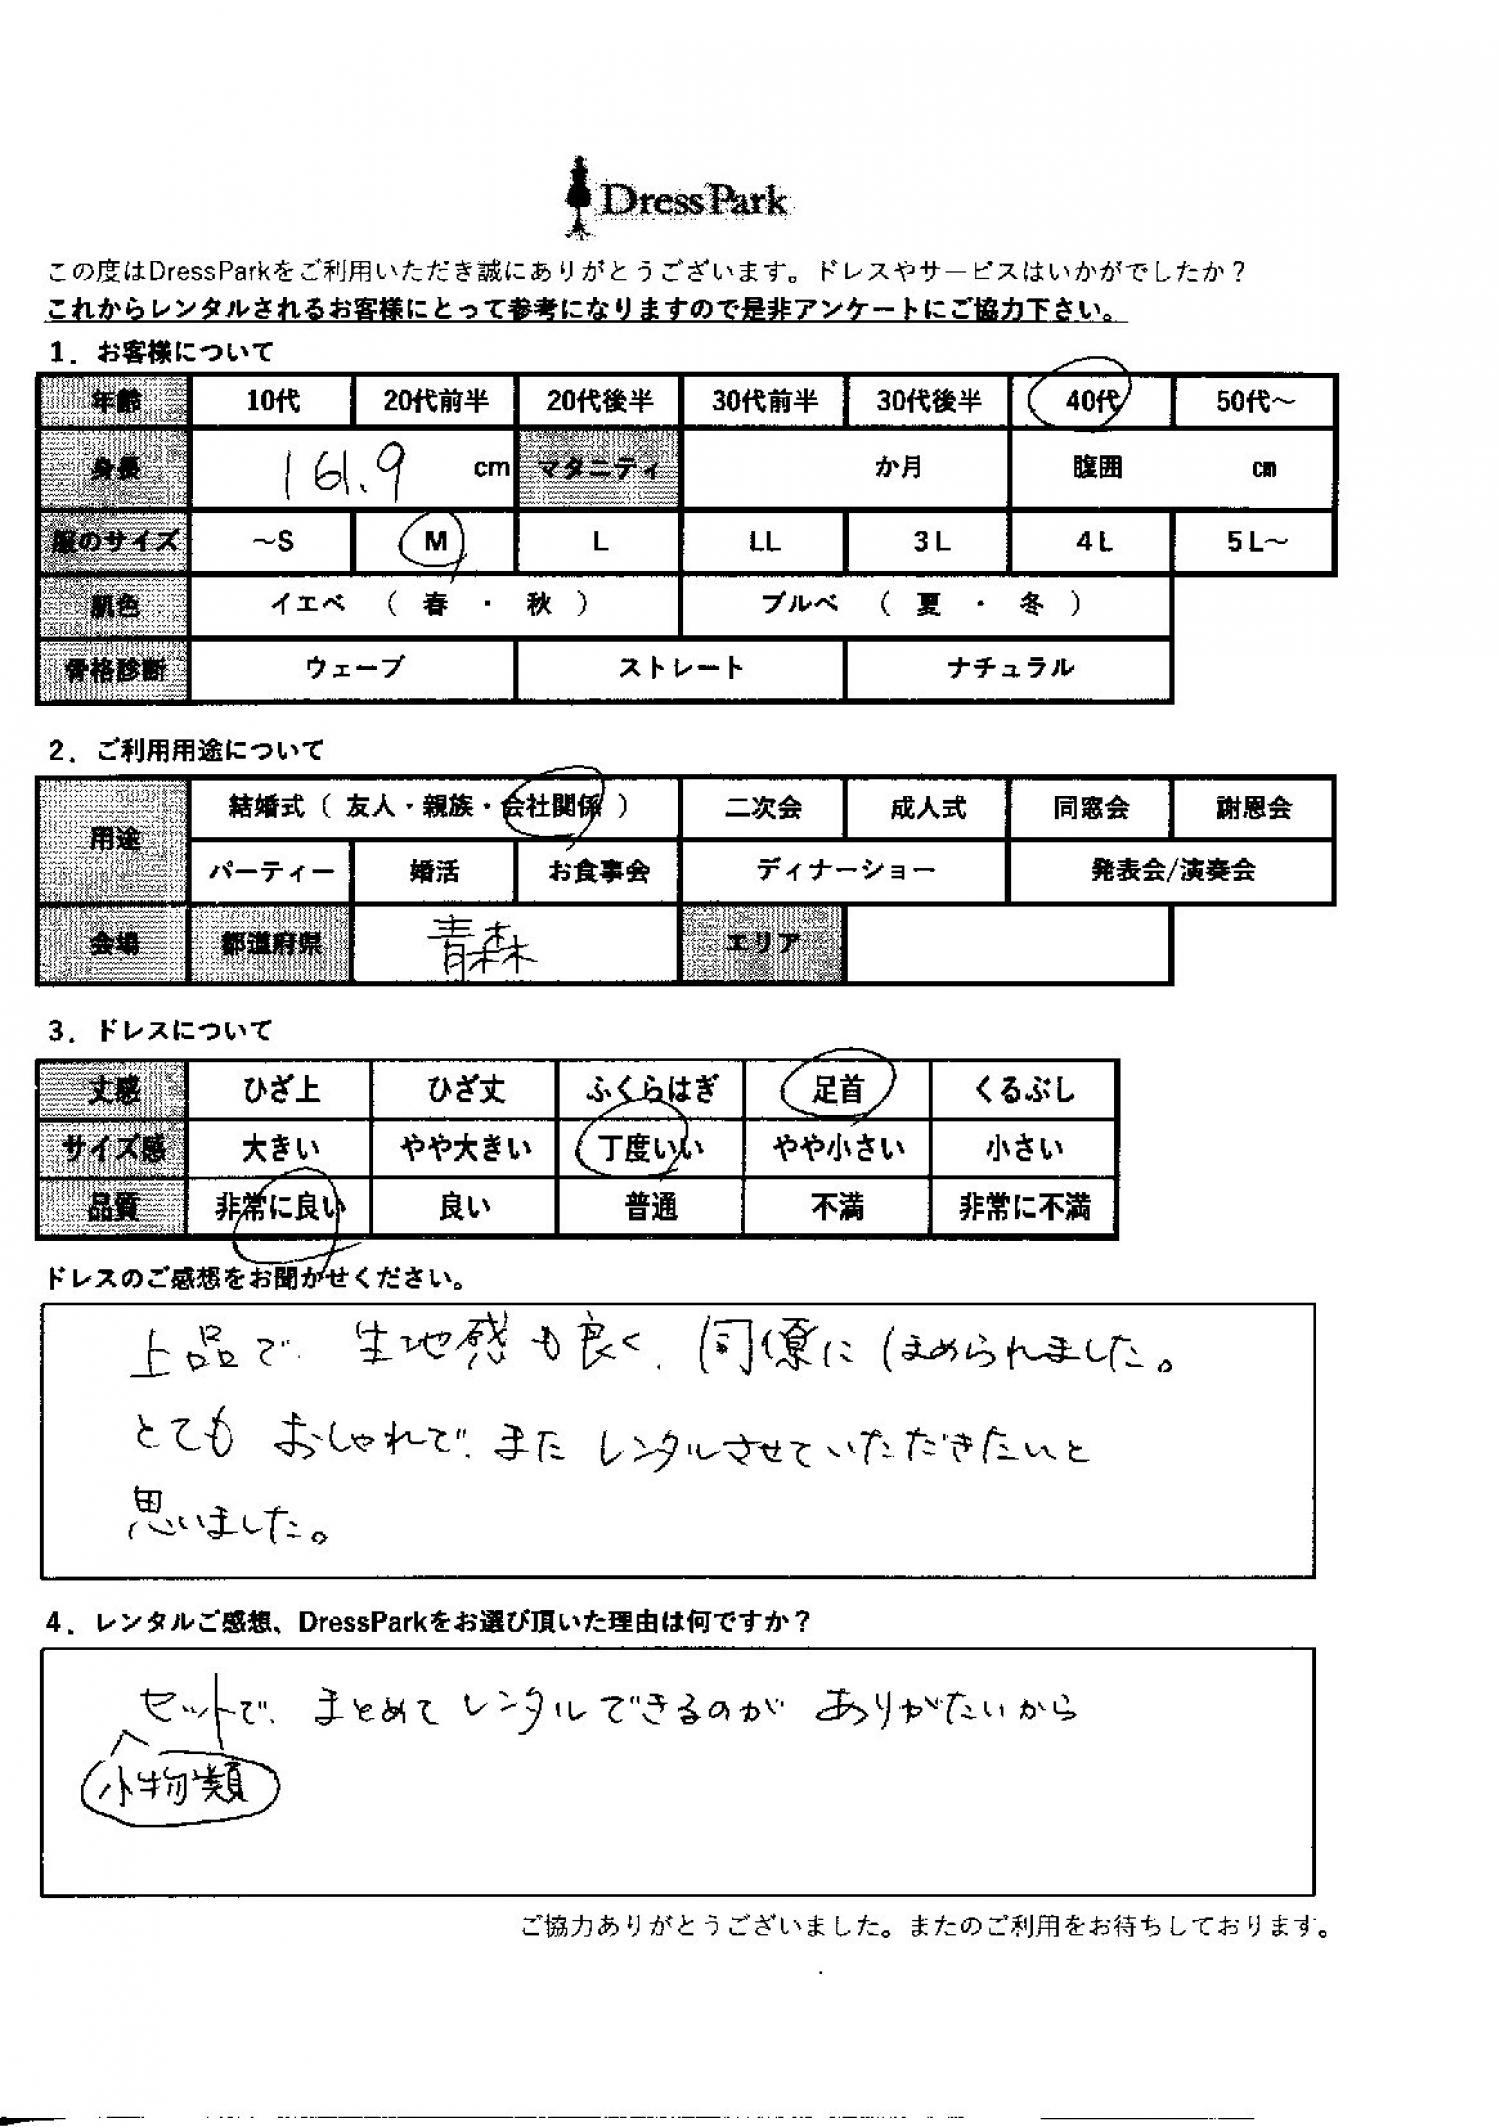 DressPark
この度はDressParkをご利用いただき誠にありがとうございます。ドレスやサービスはいかがでしたか？
これからレンタルされるお客様にとって参考になりますので是非アンケートにご協力下さい。
1．お客様について
年齢 10代 20代前半 20代後半 30代前半 30代後半 40代 50代～
身長 161.9 cm マタニティ か月 腹囲 cm
服のサイズ ～S M L LL 3L 4L 5L～
肌色 イエベ （ 春 ・ 秋 ） ブルベ （ 夏 ・ 冬 ）
骨格診断 ウェーブ ストレート ナチュラル
2．ご利用用途について
用途 結婚式（ 友人・親族・会社関係 ） 二次会 成人式 同窓会 謝恩会
パーティー 婚活 お食事会 ディナーショー 発表会/演奏会
会場 都道府県 青森 エリア
3．ドレスについて
丈感 ひざ上 ひざ丈 ふくらはぎ 足首 くるぶし
サイズ感 大きい やや大きい 丁度いい やや小さい 小さい
品質 非常に良い 良い 普通 不満 非常に不満
ドレスのご感想をお聞かせください。
上品で、生地感も良く、同僚にほめられました。
とても おしゃれで、また レンタルさせていただきたいと
思いました。
4．レンタルご感想、DressParkをお選び頂いた理由は何ですか？
セットで、まとめて レンタルできるのが ありがたいから
小物類
ご協力ありがとうございました。またのご利用をお待ちしております。